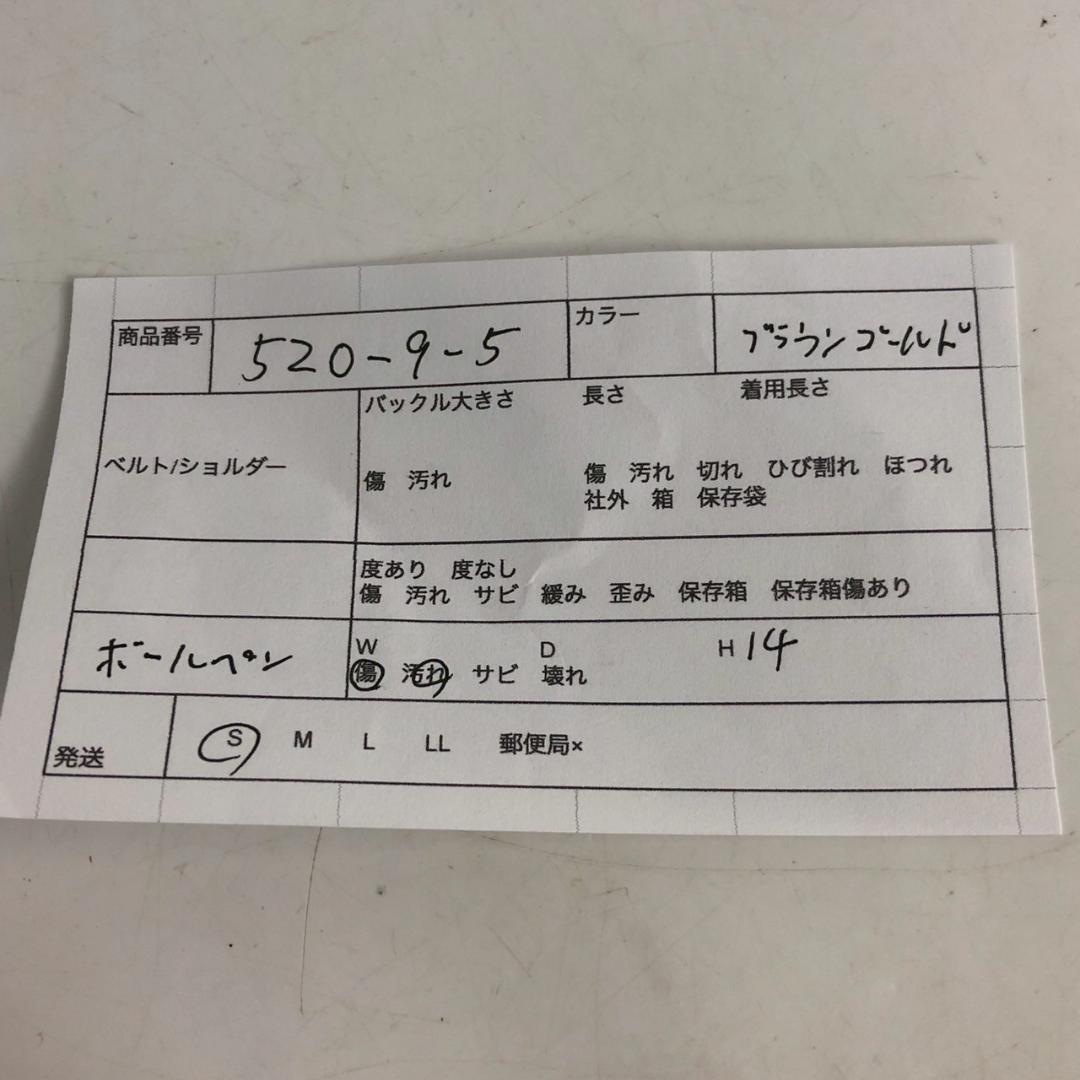 商品番号 520-9-5 カラー ブラウンゴールド
ベルト/ショルダー
バックル大きさ 長さ 着用長さ
傷 汚れ 傷 汚れ 切れ ひび割れ ほつれ
社外 箱 保存袋
度あり 度なし
傷 汚れ サビ 緩み 歪み 保存箱 保存箱傷あり
ボールペン
W D H 14
傷 汚れ サビ 壊れ
発送 S M L LL 郵便局×